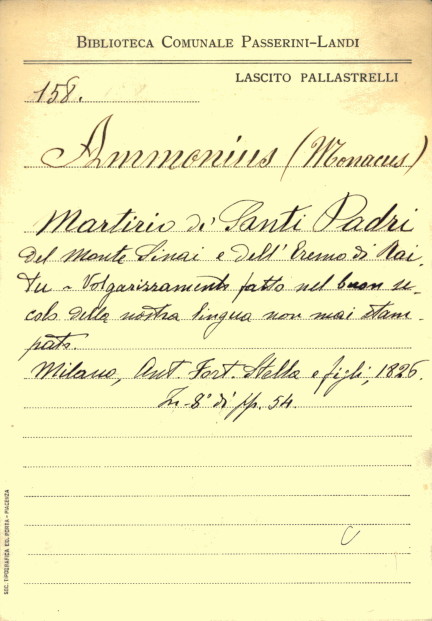 BIBLIOTECA COMUNALE PASSERINI-LANDI
LASCITO PALLASTRELLI
158.
Ammonius (Monacus)
Martirio di Santi Padri
del Monte Sinai e dell'Eremo di Rai-
tu - Volgarizzamento fatto nel buon se-
colo della nostra lingua non mai stam-
pato.
Milano, Ant. Fort. Stella e figli, 1826.
In-8° di pp. 54.
C
SOC. TIPOGRAFICA EDI. PORTA - PIACENZA